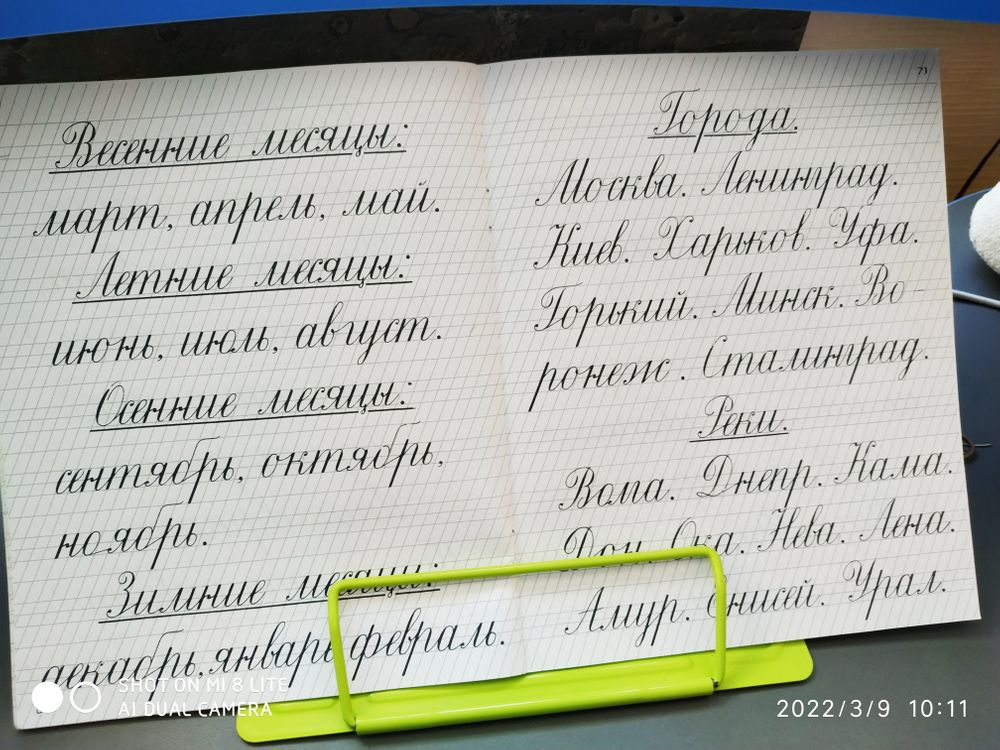 Весенние месяцы:
март, апрель, май.
Летние месяцы:
июнь, июль, август.
Осенние месяцы:
сентябрь, октябрь,
ноябрь.
Зимние месяцы:
декабрь, январь, февраль.
21
Города.
Москва. Ленинград.
Киев. Харьков. Уфа.
Горький. Минск. Во-
ронеж. Сталинград.
Реки.
Волга. Днепр. Кама.
Дон. Ока. Нева. Лена.
Амур. Енисей. Урал.
SHOT ON MI 8 LITE
AI DUAL CAMERA
2022/3/9 10:11